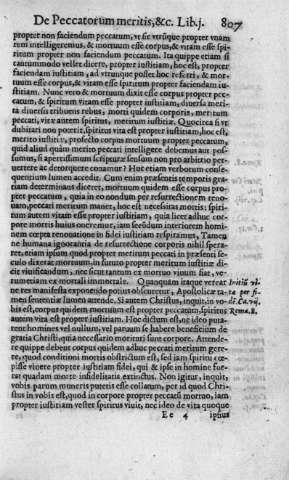 De Peccatorum meritis, &c. Lib. j. 807
propter non faciendum peccatum, vt se vtrūque propter vnam
rem intelligeremus, & mortuum esse corpus, & vitam esse spi-
ritum propter non faciendum peccatum. Ita quippe etiam si
tantummodo vellet dicere, propter iustitiam, hoc est, propter
faciendam iustitiam, ad vtrumque posset hoc referri, & mor-
tuum esse corpus, & vitam esse spiritum propter faciendam iu-
stitiam. Nunc vero & mortuum dixit esse corpus propter pec-
catum, & spiritum vitam esse propter iustitiam, diuersa merita
diuersis tribuens rebus, morti quidem corporis, meritum
peccati, vitæ autem spiritus, meritum iustitiæ. Quocirca si vt
dubitari non potest, spiritus vita est propter iustitiam, hoc est,
merito iustitiæ, profecto corpus mortuum propter peccatum,
quid aliud quàm merito peccati intelligere debemus aut pos-
sumus, si apertissimum scripturæ sensum non pro arbitrio per-
uertere ac detorquere conamur? Huic etiam verborum conse-
quentium lumen accedit. Cum enim præsentis temporis gra-
tiam determinans diceret, mortuum quidem esse corpus pro-
pter peccatum, quia in eo nondum per resurrectionem reno-
uato, peccati meritum manet, hoc est necessitas mortis: spiri-
tum autem vitam esse propter iustitiam, quia licet adhuc cor-
pore mortis huius oneremur, iam secūdum interiorem homi-
nem cœpta renouatione in fidei iustitiam respiramus, Tamen
ne humana ignorantia de resurrectione corporis nihil spera-
ret, etiam ipsum quod propter meritum peccati in præsenti se-
culo dixerat mortuum, in futuro propter meritum iustitiæ di-
cit viuificandum, nec sic vt tantum ex mortuo viuum fiat, ve-
rumetiam ex mortali immortale. Quanquam itaque verear
ne res manifesta exponendo potius obscuretur, Apostolicæ ta-
men sententiæ lumen attende. Si autem Christus, inquit, in vo-
bis est, corpus quidem mortuum est propter peccatum, spiritus
autem vita est propter iustitiam. Hoc dictum est, ne ideo puta-
rent homines vel nullum, vel paruum se habere beneficium de
gratia Christi, quia necessario morituri sunt corpore. Attende-
re quippe debent corpus quidem adhuc peccati meritum gere-
re, quod conditioni mortis obstrictum est, sed iam spiritū cœ-
pisse viuere propter iustitiam fidei, qui & ipse in homine fue-
rat quadam morte infidelitatis extinctus. Non igitur, inquit,
vobis parum muneris putetis esse collatum, per id quod Chri-
stus in vobis est, quod in corpore propter peccatū mortuo, iam
propter iustitiam vester spiritus viuit, nec ideo de vita quoque
Ee 4 ipsius
Rom. 8.